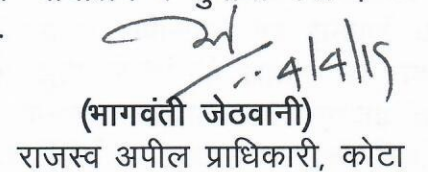 4/4/15
(भागवंती जेठवानी)
राजस्व अपील प्राधिकारी, कोटा